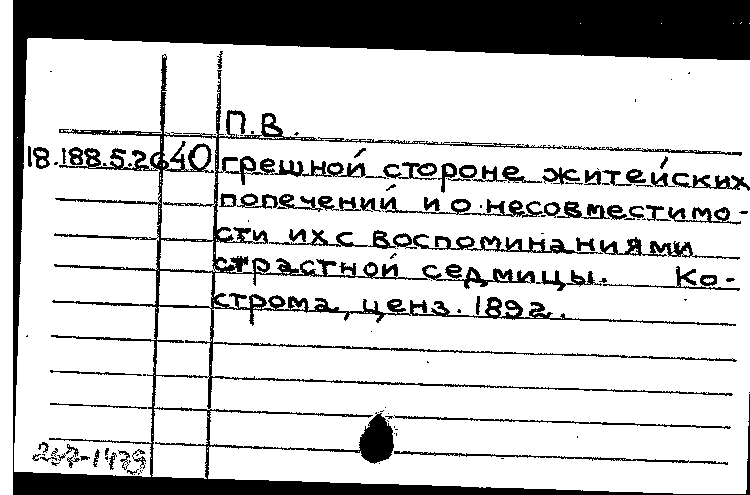 П.В.
18.188.5.2640 грешной стороне житейских
попечений и о несовместимо-
сти их с воспоминаниями
страстной седмицы. Ко-
строма, ценз. 1892.
267-1479